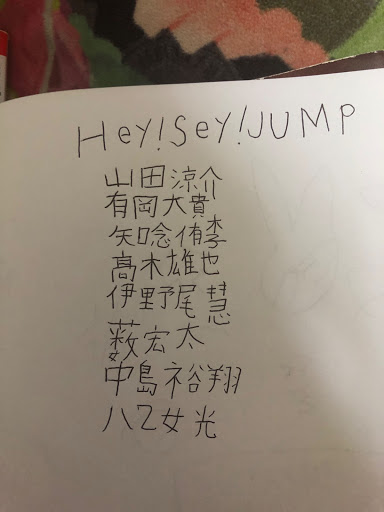 Hey!Sey!JUMP
山田涼介
有岡大貴
矢唸侑李
高木雄也
伊野尾慧
薮宏太
中島裕翔
八乙女光